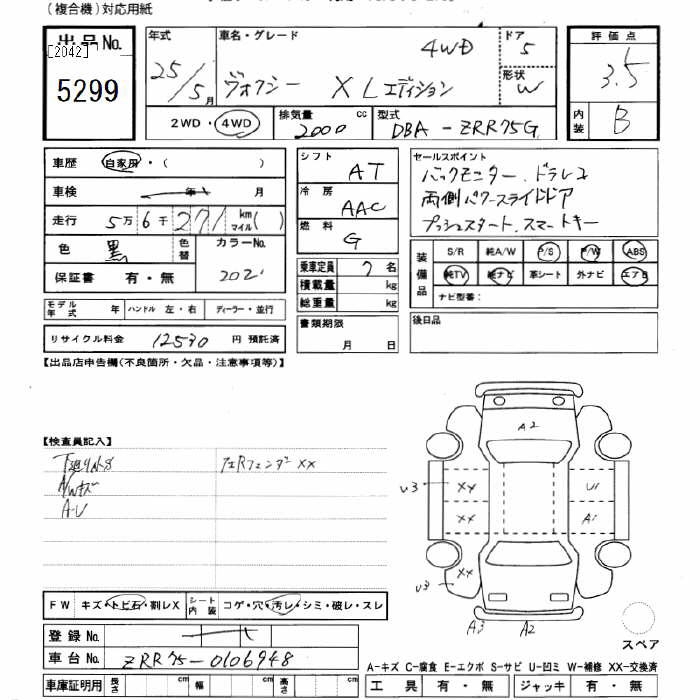 (複合機)対応用紙
出品No.
[2042]
5299
年式
25/5月
車名・グレード
4WD
ヴォクシー XLエディション
ドア
5
形状
W
評価点
3.5
内装
B
2WD・4WD
排気量
2000 cc
型式
DBA-ZRR75G
車歴 自家用・(
車検 年 月
走行 5万6千271 km マイル( )
色 黒 色替 カラーNo.
保証書 有・無 202
モデル年式 年 ハンドル 左・右 ディーラー・並行
リサイクル料金 12530 円預託済
シフト
AT
冷房
AAC
燃料
G
乗車定員 7 名
積載量 kg
総重量 kg
書類期限
月 日
セールスポイント
バックモニター、ドラレコ
両側パワースライドドア
プッシュスタート、スマートキー
装備品
S/R 純A/W P/S P/W ABS
純TV 純ナビ 革シート 外ナビ エアB
ナビ型番:
後日品
【出品店申告欄(不良箇所・欠品・注意事項等)】
【検査員記入】
A/Wキズ
A・U
左Rフェンダー XX
A2
U3 XX U1
XX A1
U3 XX
A3 A2
スペア
FW キズ・トビ石・割レX シート内装 コゲ・穴・汚レ・シミ・破レ・スレ
登録No.
車台No. ZRR75-0106948
車庫証明用 長さ cm 幅 cm 高さ cm
A-キズ C-腐食 E-エクボ S-サビ U-凹ミ W-補修 XX-交換済
工具 有・無 ジャッキ 有・無